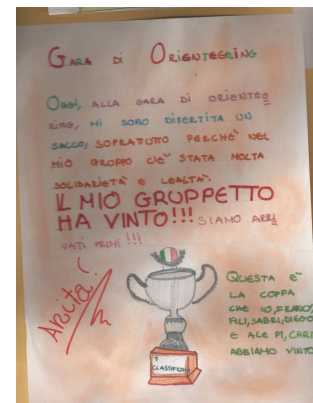 GARA DI ORIENTEERING
OGGI, ALLA GARA DI ORIENTEE
RING, MI SONO DIVERTITA UN
SACCO, SOPRATTUTTO PERCHÈ NEL
MIO GRUPPO C'È STATA MOLTA
SOLIDARIETÀ E LEALTÀ.
IL MIO GRUPPETTO
HA VINTO!!! SIAMO ARRI
VATI PRIMI!!!
QUESTA È
LA COPPA
CHE IO, FRANCY,
FILI, SABRI, DIEGO
E ALE PI, CHRI
ABBIAMO VINTO
1
CLASSIFICATI